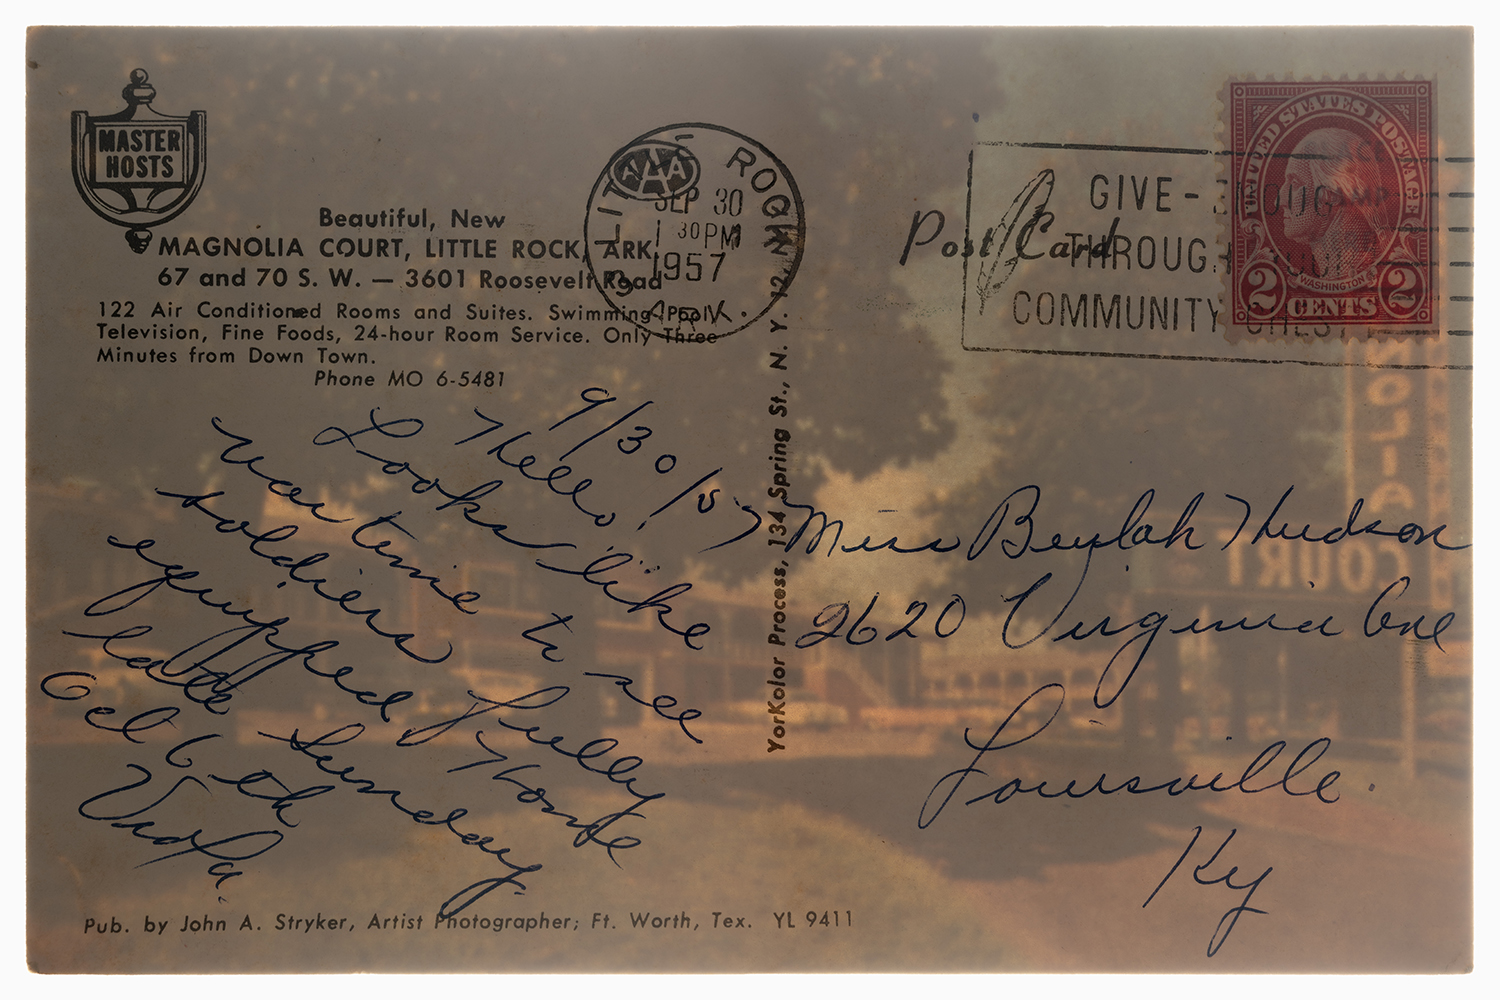 MASTER
HOSTS
Beautiful, New
MAGNOLIA COURT, LITTLE ROCK, ARK.
67 and 70 S. W. — 3601 Roosevelt Road
122 Air Conditioned Rooms and Suites. Swimming Pool,
Television, Fine Foods, 24-hour Room Service. Only Three
Minutes from Down Town.
Phone MO 6-5481
9/30/57
Hello!
Looks like
war time to see
soldiers fully
equipped Home
late Sunday.
Oct 6th
Viola.
Pub. by John A. Stryker, Artist Photographer; Ft. Worth, Tex. YL 9411
AAA
LITTLE ROCK
SEP 30
1 30 PM
1957
ARK.
YorKolor Process, 134 Spring St., N. Y. 12, N. Y.
Post Card
GIVE-ENOUGH
THROUGH YOUR
COMMUNITY CHEST
UNITED STATES POSTAGE
WASHINGTON
2 CENTS 2
Miss Beulah Hudson
2620 Virginia Ave
Louisville.
Ky
NOLIA
COURT